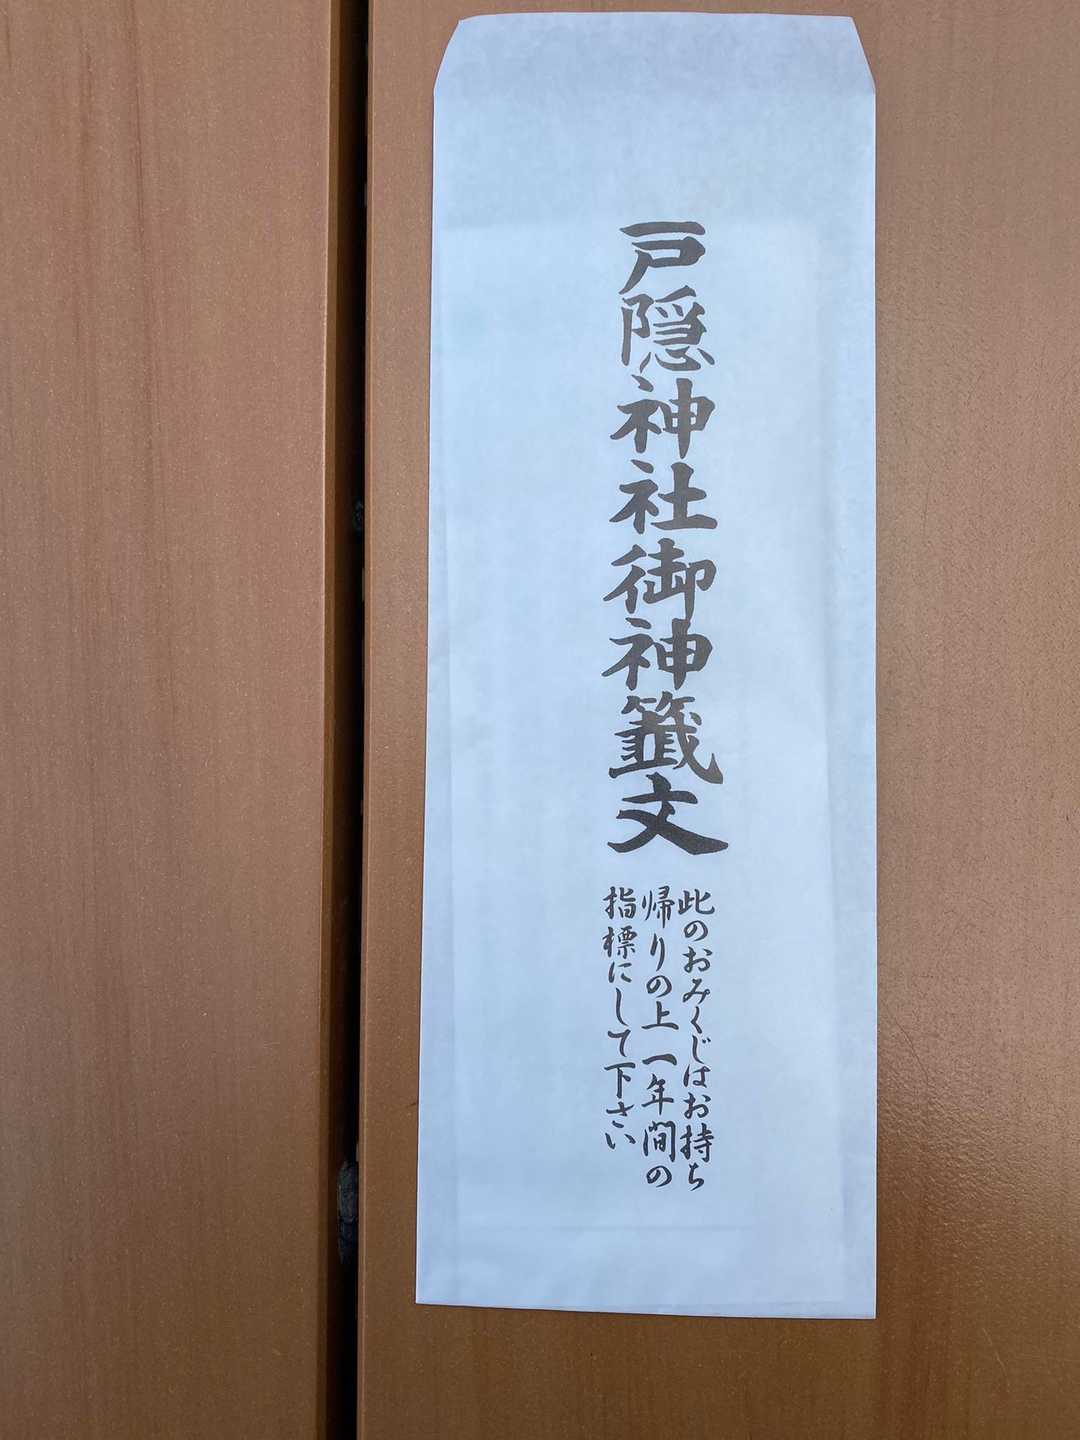 戸隠神社御神籤文
此のおみくじはお持ち
帰りの上一年間の
指標にして下さい